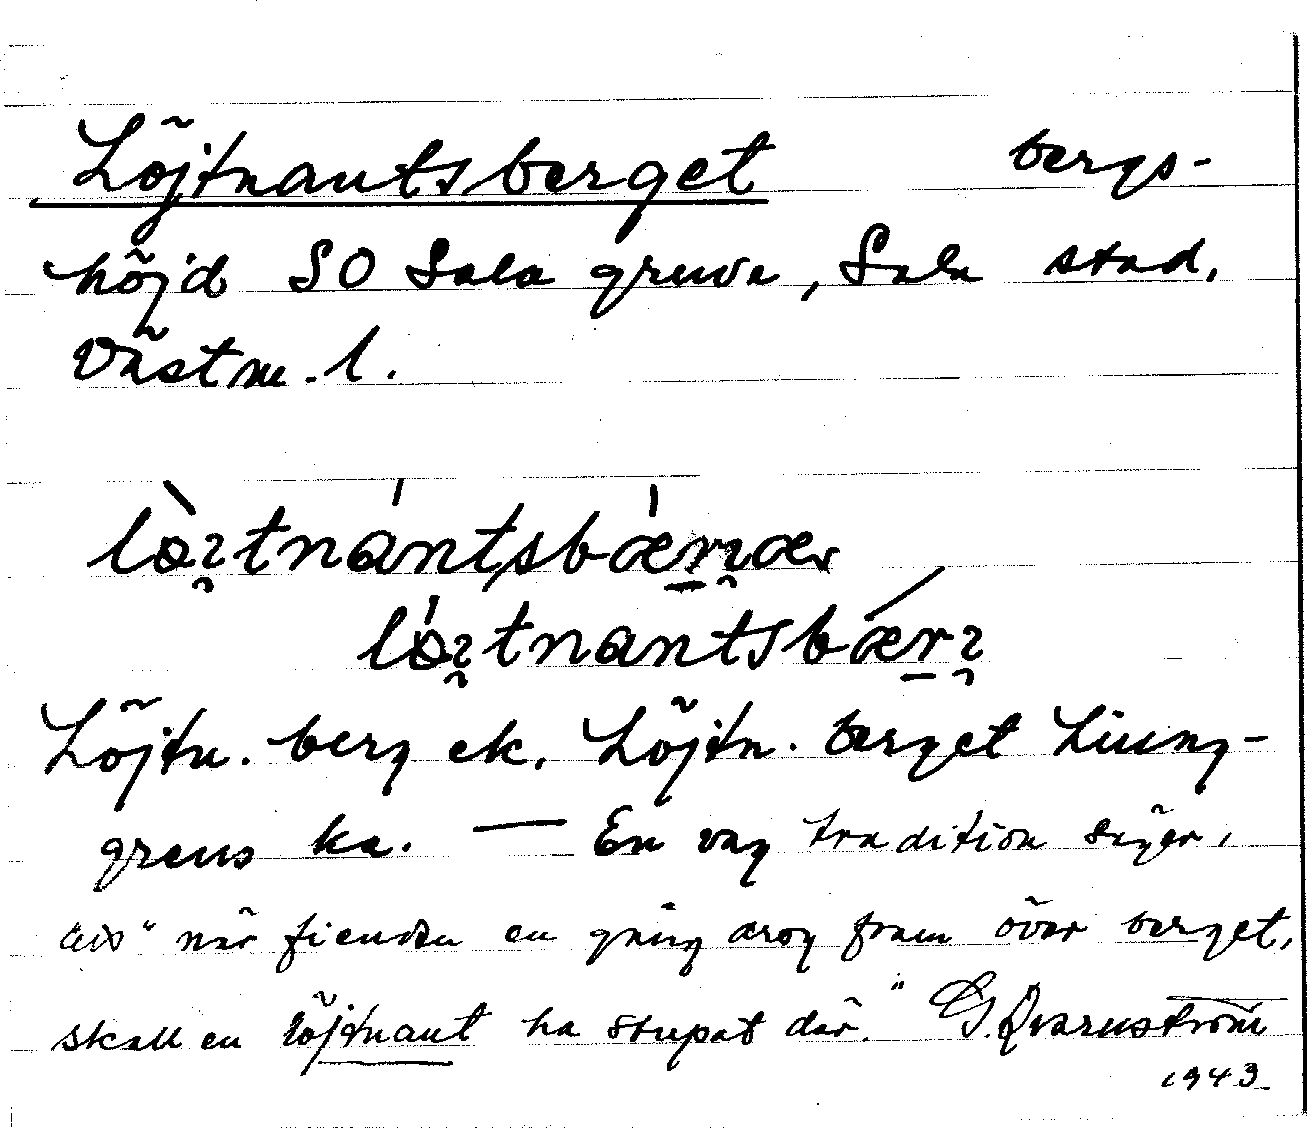 Löjtnantsberget bergs-
höjd SO Sala gruva, Sala stad,
Västm. l.
Löjtn. berg ek. Löjtn. berget Ljung-
grens ka. — En vag tradition säger,
"när fienden en gång drog fram över berget,
skall en löjtnant ha stupat där." G. Qvarnström
1943